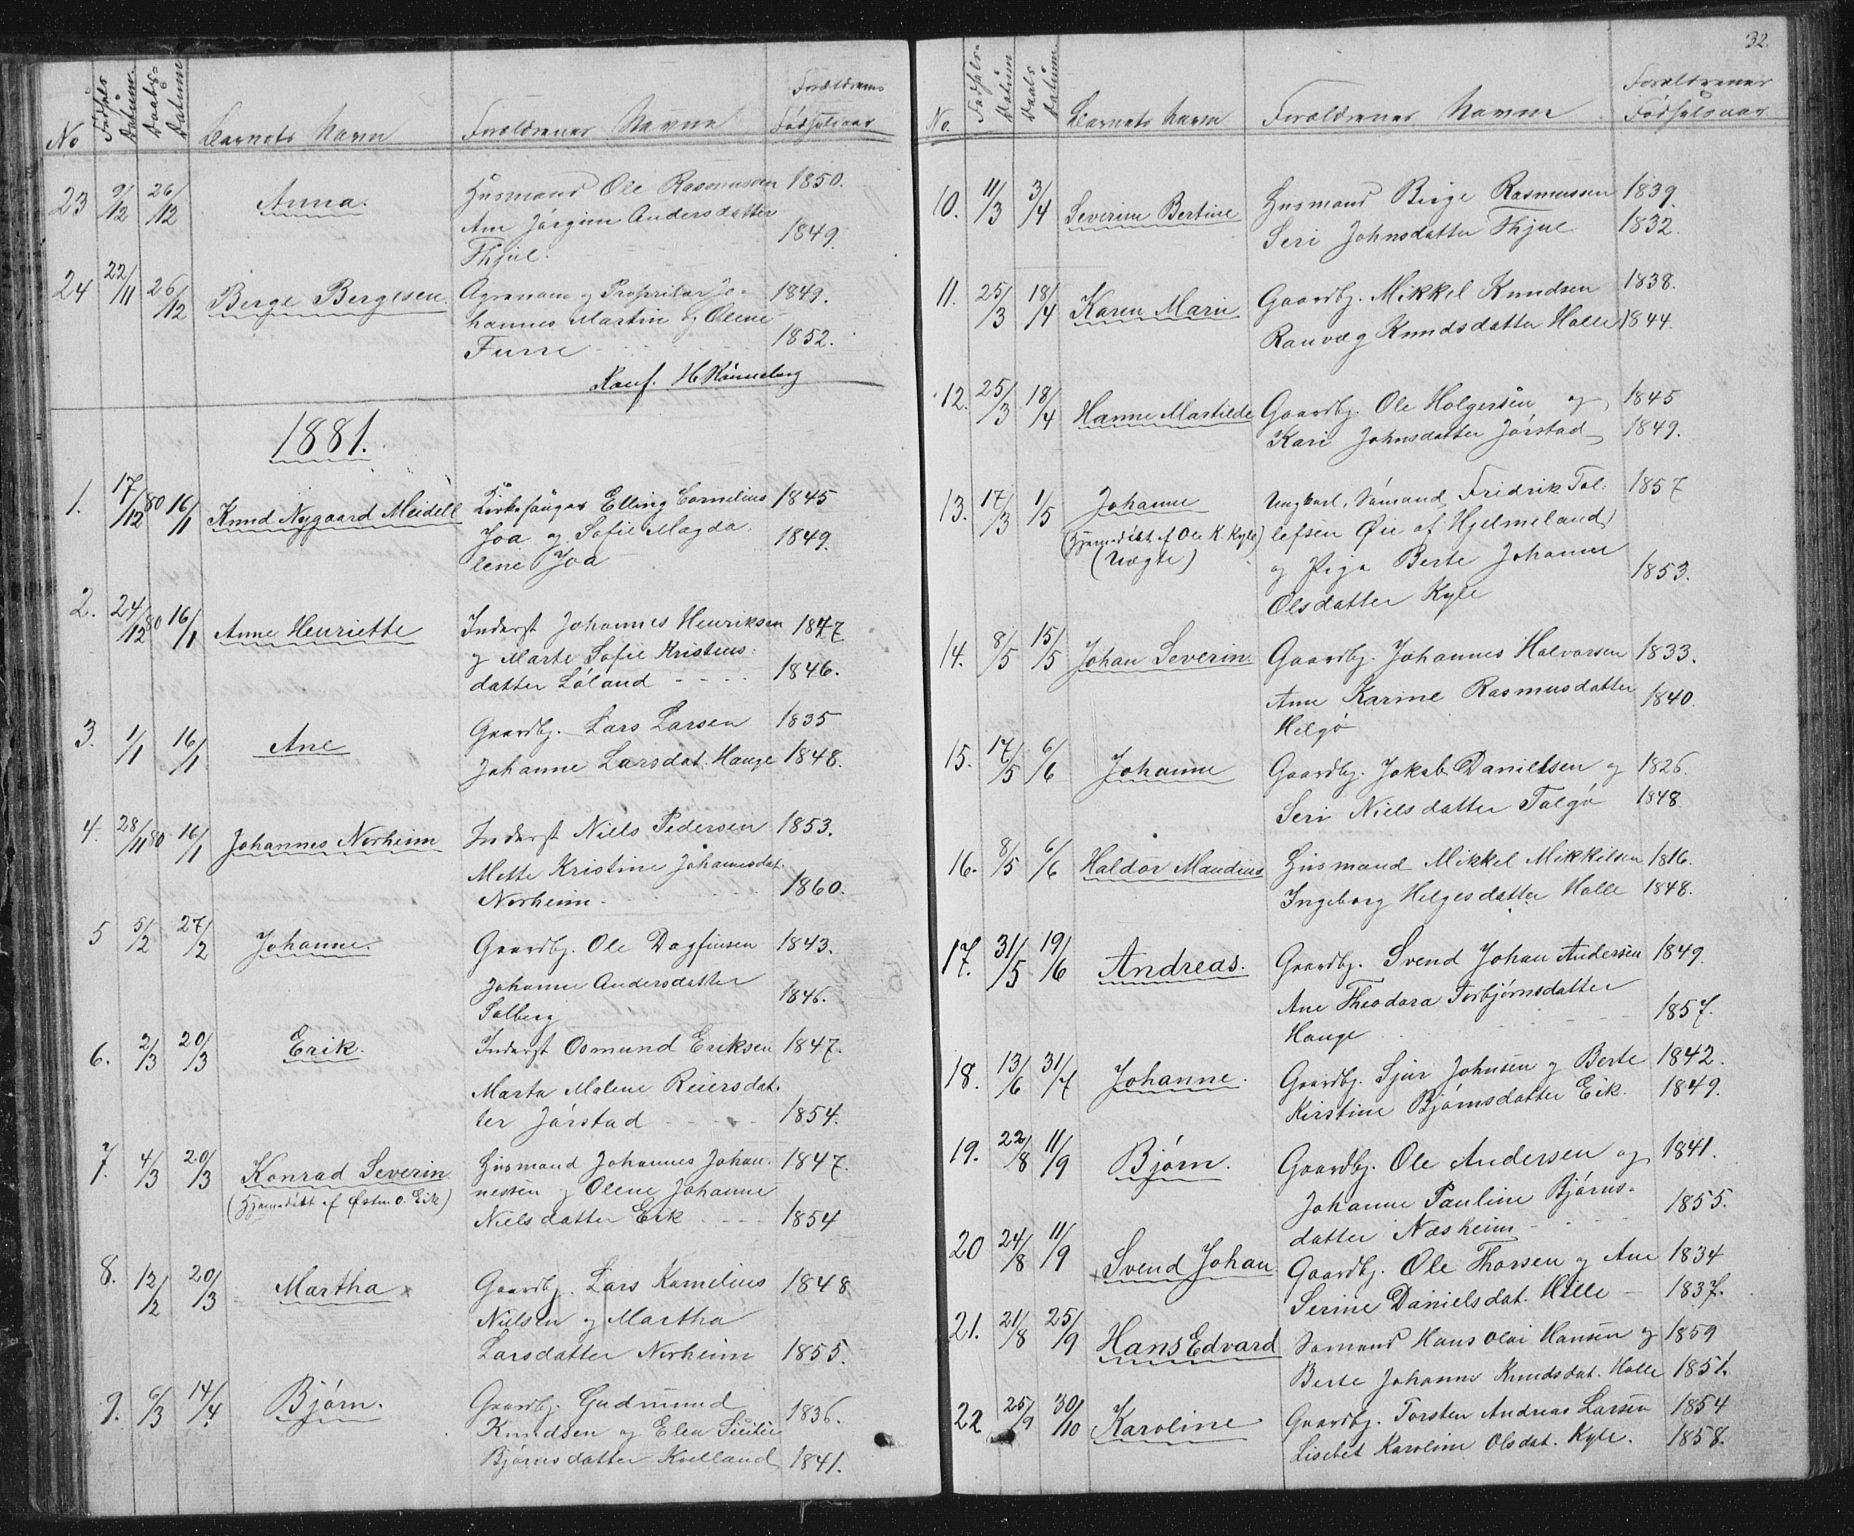 No Fødsels Datum. Daabs- Datum Barnets Navn Forældrenes Navne Forældrenes Fødselsaar
23 9/12 26/12 Anna. Husmand Ole Rasmussen 1850.
Ane Jørgine Andersdatter
Thjul. 1849.
24 22/11 26/12 Berge Bergesen Agronom og Propritær Jo- 1849.
hannes Martin og Olene
Furre 1852.
Konf. H. Rønneberg
1881.
1. 17/12 80 16/1 Knud Nygaard Meidell Kirkesanger Elling Cornelius 1845
Joa og Sofie Magda- 1849.
lene Joa
2. 24/12 80 16/1 Anne Henriette Inderst Johannes Henriksen 1847
og Marte Sofie Kristens-
datter Løland 1846.
3. 1/1 16/1 Ane Gaardbr. Lars Larsen 1835
Johanne Larsdat. Hauge 1848.
4. 28/11 80 16/1 Johannes Norheim Inderst Niels Pedersen 1853.
Mette Kristine Johannesdat.
Norheim. 1860.
5 5/2 27/2 Johanne. Gaardbr. Ole Dagfinsen 1843.
Johanne Andersdatter
Solberg 1846.
6. 2/3 20/3 Erik. Inderst Osmund Eriksen 1847.
Marta Malene Reiersdat-
ter Jørstad 1854.
7. 4/3 20/3 Konrad Severin Husmand Johannes Johan- 1847.
(Hjemedøbt af Østen O. Eik) nessen og Olene Johanne
Nielsdatter Eik 1854
8. 12/2 20/3 Martha Gaardbr. Lars Kornelius 1848
Nielsen og Martha
Larsdatter Norheim 1855.
9. 6/3 14/4 Bjørn. Gaardbr. Gudmund 1836.
Knudsen og Elen Sicilie
Bjørnsdatter Kvelland 1841.
32.
No. Fødsels Datum Daabs Datum Barnets Navn Forældrenes Navne Forældrenes Fødselsaar
10. 11/3 3/4 Severine Bertine Husmand Birge Rasmussen 1839.
Seri Johnsdatter Thjul 1832.
11. 25/3 18/4 Karen Marie Gaardbr. Mikkel Knudsen 1838.
Ranvæg Knudsdatter Halle 1844.
12. 25/3 18/4 Hanne Martilde Gaardbr. Ole Holgersen og 1845
Kari Johnsdatter Jørstad 1849.
13. 17/3 1/5 Johanne Ungkarl, Sømand Fridrik Tol- 1857
(Hjemedøbt af Ole K. Kyle) lefsen Øie af Hjelmeland
(Uægte) og Pige Berte Johanne 1853.
Olsdatter Kyle
14. 8/5 15/5 Johan Severin Gaardbr. Johannes Halvorsen 1833.
Ane Karine Rasmusdatter 1840.
Helgø
15. 17/5 6/6 Johanne Gaardbr. Jakob Danielsen og 1826.
Seri Nielsdatter Talgø 1848.
16. 8/5 6/6 Haldor Maudius Husmand Mikkel Mikkelsen 1816.
Ingeborg Helgesdatter Halle 1848.
17. 31/5 19/6 Andreas. Gaardbr. Svend Johan Andersen 1849.
Ane Theodora Torbjørnsdatter
Hauge 1857.
18. 13/6 31/7 Johanne. Gaardbr. Sjur Johnsen og Berte 1842.
Kirstine Bjørnsdatter Eik. 1849.
19. 22/8 11/9 Bjørn. Gaardbr. Ole Andersen og 1841.
Johanne Pauline Bjørns- 1855.
datter Næsheim
20 24/8 11/9 Svend Johan Gaardbr. Ole Thorsen og Ane 1834
Serine Danielsdat. Hille 1837.
21. 21/8 25/9 Hans Edvard Sømand Hans Olai Hansen og 1859
Berte Johanne Knudsdat. Halle 1851.
22 25/9 30/10 Karoline Gaardbr. Torsten Andreas Larsen 1854
Lisebet Karoline Olsdat. Kyle. 1858.